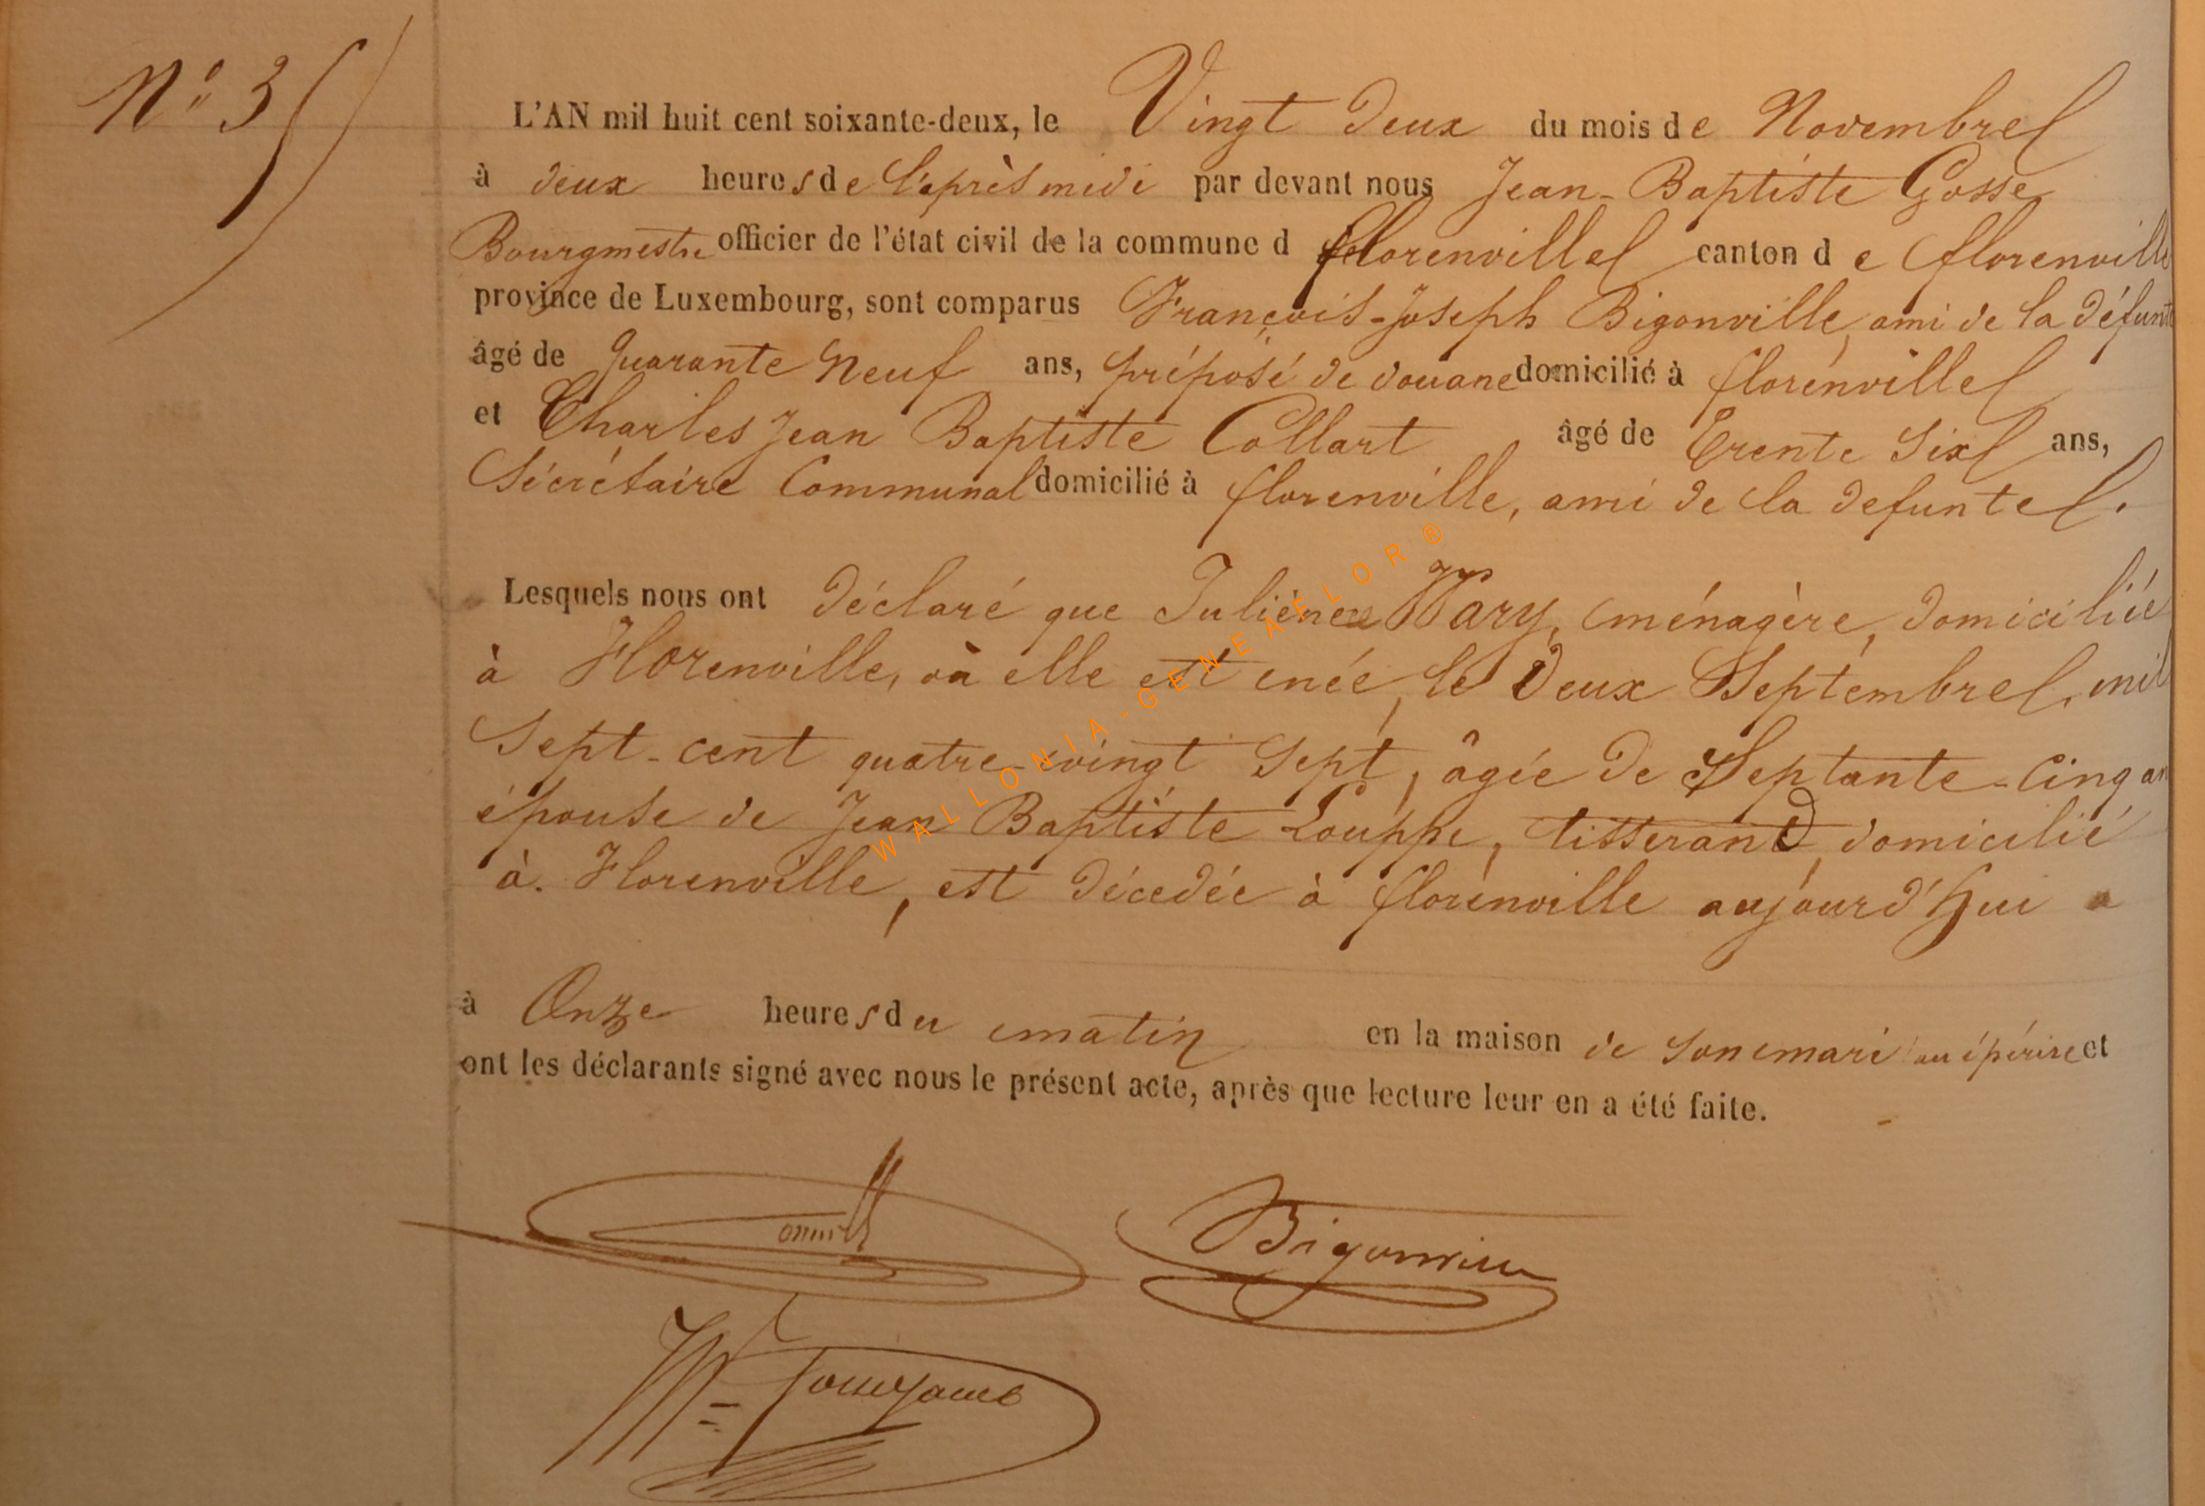 N° 3
L'AN mil huit cent soixante-deux, le Vingt deux du mois de Novembre
à deux heures de l'après midi par devant nous Jean-Baptiste Gosse
Bourgmestre officier de l'état civil de la commune d florenville canton de florenville
province de Luxembourg, sont comparus François-Joseph Bigonville, ami de la défunte
âgé de quarante Neuf ans, préposé de douane domicilié à florenville
et Charles Jean Baptiste Collart âgé de Trente Six ans,
Sécrétaire Communal domicilié à florenville, ami de la defunte.
Lesquels nous ont déclaré que Juliènne Wary, ménagère, domiciliée
à Florenville, où elle est née, le Deux Septembre, mil
Sept-cent quatre-vingt Sept, âgée de Septante-Cinq an
épouse de Jean Baptiste Louppe, tisserand, domicilié
à Florenville, est décedée à florenville aujourd'hui
à Onze heures du matin en la maison de son mari et
ont les déclarants signé avec nous le présent acte, après que lecture leur en a été faite.
Bigonville
WALLONIA-GENEAFLOR®